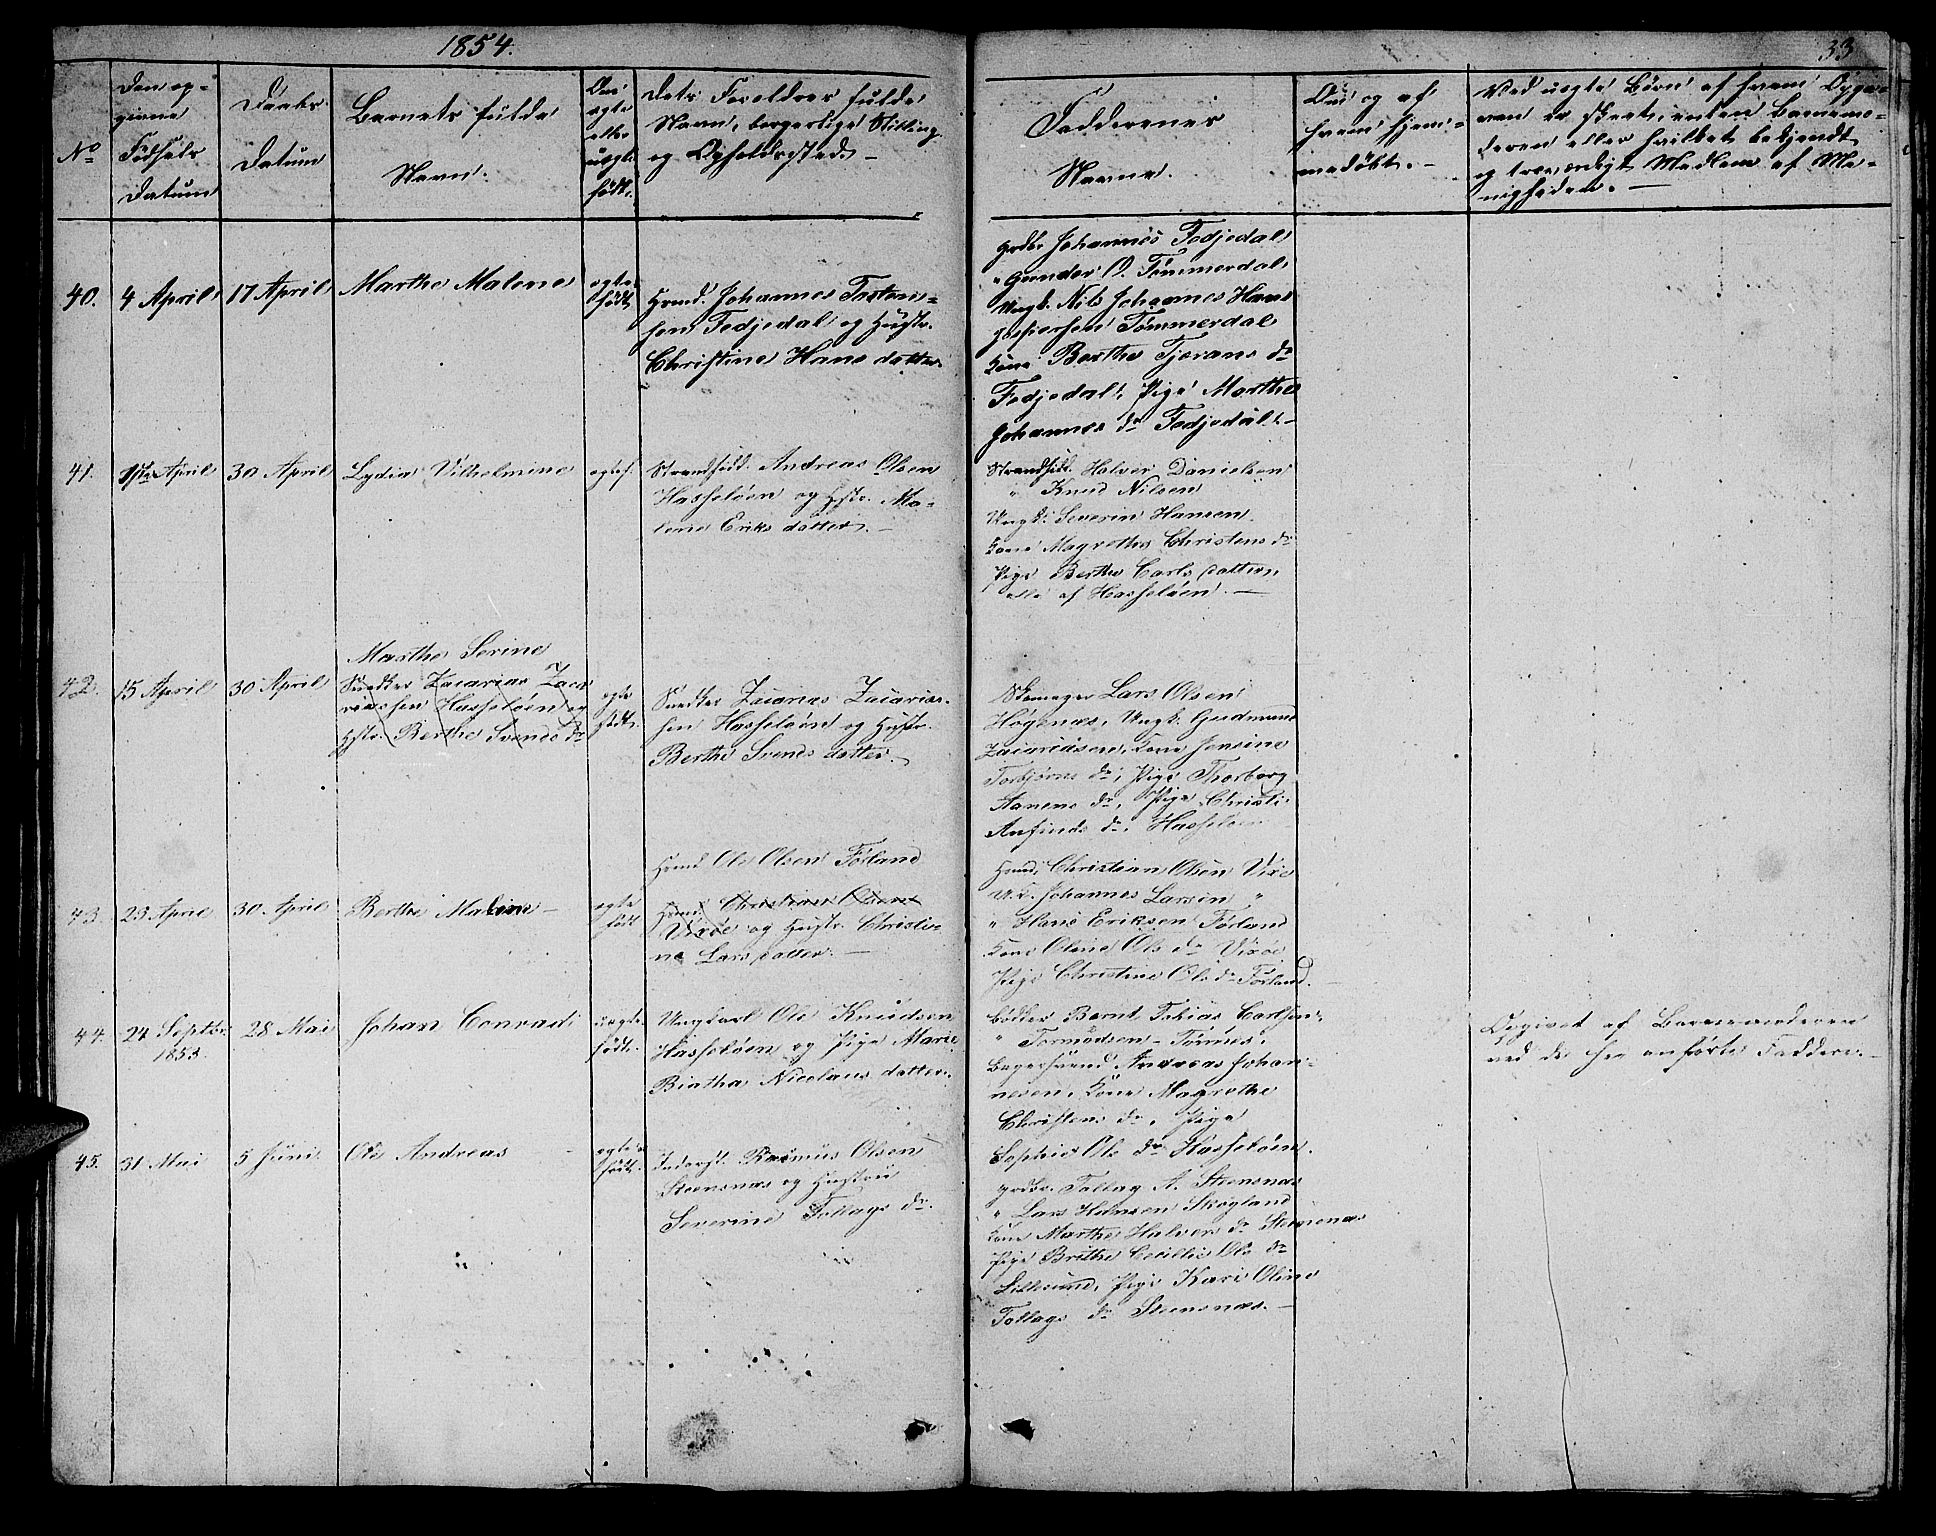 1854.
33
No
Den op-
givne
Fødsels
Datum
Daabs
Datum
Barnets fulde
Navn.
Om
egte
eller
uegte
født.
Dets Foreldres fulde
Navn, borgerlige Stilling
og Opholdssted. —
Faddernes
Navne.
Om og af
hvem hjem-
medøbt. —
Ved uegte Børn af hvem Opga-
ven er skeet, enten Barnemo-
deren eller hvilket bekjendt
og troværdigt Medlem af Me-
nigheden. —
40.
4 April
17 April
Marthe Malene
egte
født
Hmd. Johannes Torten-
sen Fedjedal og Hustr.
Christine Hans datter
Grdbr Johannes Fedjedal
" Gunder O. Tømmerdal
Ungk. Nils Johannes Hans
Jespersen Tømmerdal
Kone Berthe Tjerans dr
Fedjedal, Pige Marthe
Johannes dr Fedjedal. —
41.
April
30 April
Lydia Vilhelmine
egtef.
Strandsidd. Andreas Olsen
Hasseløen og Hstr. Ma-
lene Eriks datter. —
Strandsidd. Halver Danielsen
" Knud Nilsen
Ungk. Severin Hansen.
Kone Magrethe Christens dr
Pige Berthe Carls datter
alle af Hasseløen. —
42.
15 April
30 April
Marthe Serine
Snedker Zacarias Zaca
riassen Hasseløen og
Hstr. Berthe Svends dr
egte
født.
Snedker Zacarias Zacarias-
sen Hasseløen og Hustr.
Berthe Svends datter. —
Skomager Lars Olsen
Høgenæs, Ungk. Gudmund
Zacariasen, Kone Jensine
Torbjørns dr, Pige Thorborg
Aanens dr, Pige Christi
Anfinds dr, Hasseløen
43.
23 April
30 April
Berthe Maline —
egte
født
Hmd Ole Olsen Førland
Hmd. Christian Olsen
Vixøe og Hustr. Christi-
ne Lars datter. —
Hmd, Christian Olsen Vixe
U.K. Johannes Larsen "
" Hans Eriksen Førland
Kone Oline Ols dr Vixøe
Pige Christine Ols dr Førland. —
44.
24 Septbr
1853.
28 Mai
Johan Conrad
uegte
født.
Ungkarl Ole Knudsen
Hasseløen og Pige Marie
Biatha Nicolaus datter.
Bødker Bernt Tobias Carlsen
" Tormodsen Tønnes,
Bagersvend Andreas Johan-
nesen, Kone Magrethe
Christens dr, Pige
Sophie Ols dr Hasseløen.
Opgivet af Barnemoderen
ved de her anførte Faddere. —
45.
31 Mai
5 Juni
Ole Andreas
egte
født.
Inderst. Rasmus Olsen
Steensnæs og Hustru
Severine Tollags dr.
Grdbr. Tollag A. Steensnæs
" Lars Hansen Skogland
Kone Marthe Halvers dr Steensnæs
Pige Brithe Cecillie Ols dr
Lillesund, Pige Kari Oline
Tollags dr Steensnæs. —